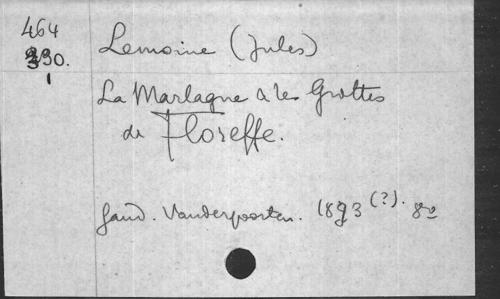 464
330.
1
Lemoine (Jules)
La Marlagne & les Grottes
de Floreffe.
Gand. Vanderpoorten. 1893 (?). 8o